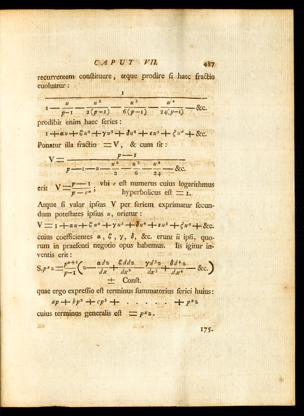 CAPUT VII. 487
recurrentem constituere, atque prodire si haec fractio
euoluatur:
1
1 - u/(p-1) - u²/(2(p-1)) - u³/(6(p-1)) - u⁴/(24(p-1)) - &c.
prodibit enim haec series:
1 + αu + ζu² + γu³ + δu⁴ + εu⁵ + ζu⁶ + &c.
Ponatur illa fractio = V, & cum sit:
V = (p-1)/(p-1-u-u²/2-u³/6-u⁴/24-&c.)
erit V = (p-1)/(p-eᵘ), vbi e est numerus cuius logarithmus
hyperbolicus est = 1.
Atque si valor ipsius V per seriem exprimatur secun-
dum potestates ipsius u, orietur:
V = 1 + αu + ζu² + γu³ + δu⁴ + εu⁵ + ζu⁶ + &c.
cuius coefficientes α, ζ, γ, δ, &c. erunt ii ipsi, quo-
rum in praesenti negotio opus habemus. Iis igitur in-
ventis erit:
± Const.
quae ergo expressio est terminus summatorius seriei huius:
ap + bp² + cp³ + . . . . . . + pˣz
cuius terminus generalis est = pˣz.
175.